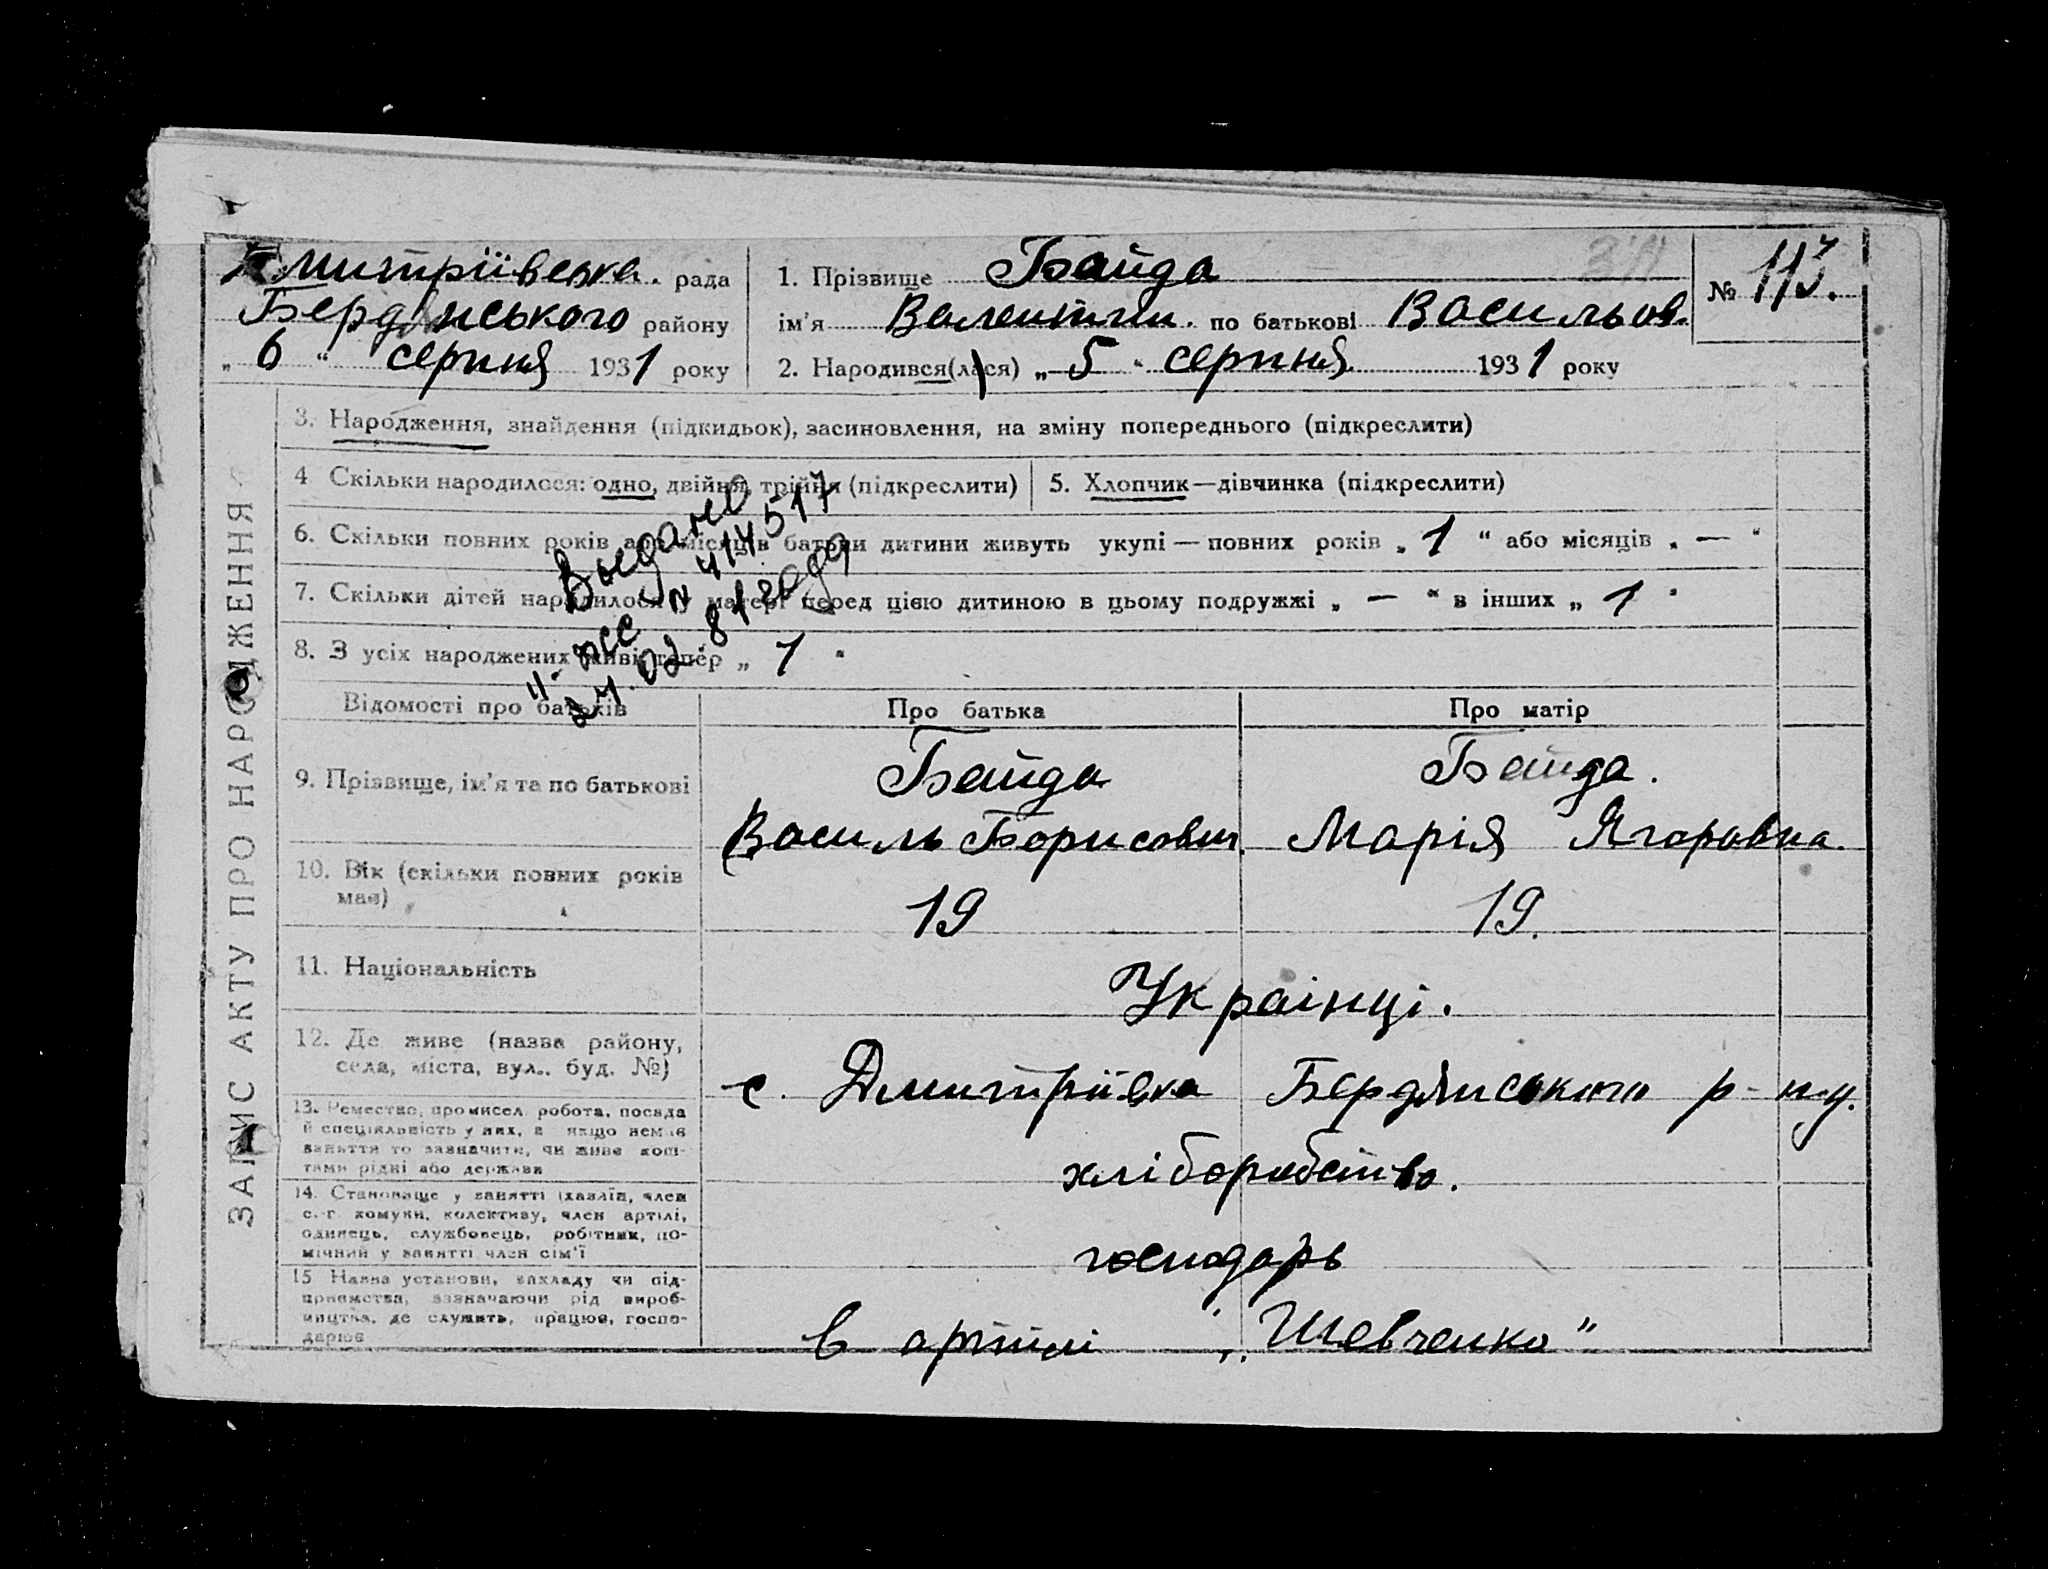 Дмитріївська. рада
Бердянського району
„ 6 " серпня 1931 року
1. Прізвище Байда
ім'я Валентин. по батькові Васильов.
2. Народився(лася) „ 5 " серпня 1931 року
311
№ 113.
ЗАПИС АКТУ ПРО НАРОДЖЕННЯ
3. Народження, знайдення (підкидьок), засиновлення, на зміну попереднього (підкреслити)
4 Скільки народилося: одно, двійня, трійня (підкреслити)
5. Хлопчик—дівчинка (підкреслити)
6. Скільки повних років або місяців батьки дитини живуть укупі — повних років „ 1 " або місяців „ — "
7. Скільки дітей народилося у матері перед цією дитиною в цьому подружжі „ — " в інших „ 1 "
8. З усіх народжених живі тепер „ 1 "
Выдано
II-ЖС № 414517
24.02.81 года
Відомості про батьків
Про батька
Про матір
9. Прізвище, ім'я та по батькові
Байда
Василь Борисович.
Байда.
Марія Ягоровна.
10. Вік (скільки повних років
має)
19
19.
11. Національність
Украінці.
12. Де живе (назва району,
села, міста, вул.. буд. №)
с. Дмитріівка Бердянського р-ну.
13. Ремество, промисел, робота, посада
й спеціяльність у них, а якщо немає
заняття то зазначити, чи живе кош-
тами рідні або держави
хліборобство.
14. Становище у занятті (хазяїн, член
с.-г. комуни, колективу, член артілі,
одинець, службовець, робітник, по-
мічний у занятті член сім'ї
господарь
15 Назва установи, закладу чи під-
приємства, зазначаючи рід вироб-
ництва, де служить, працює, госпо-
дарює
в артілі „Шевченко"